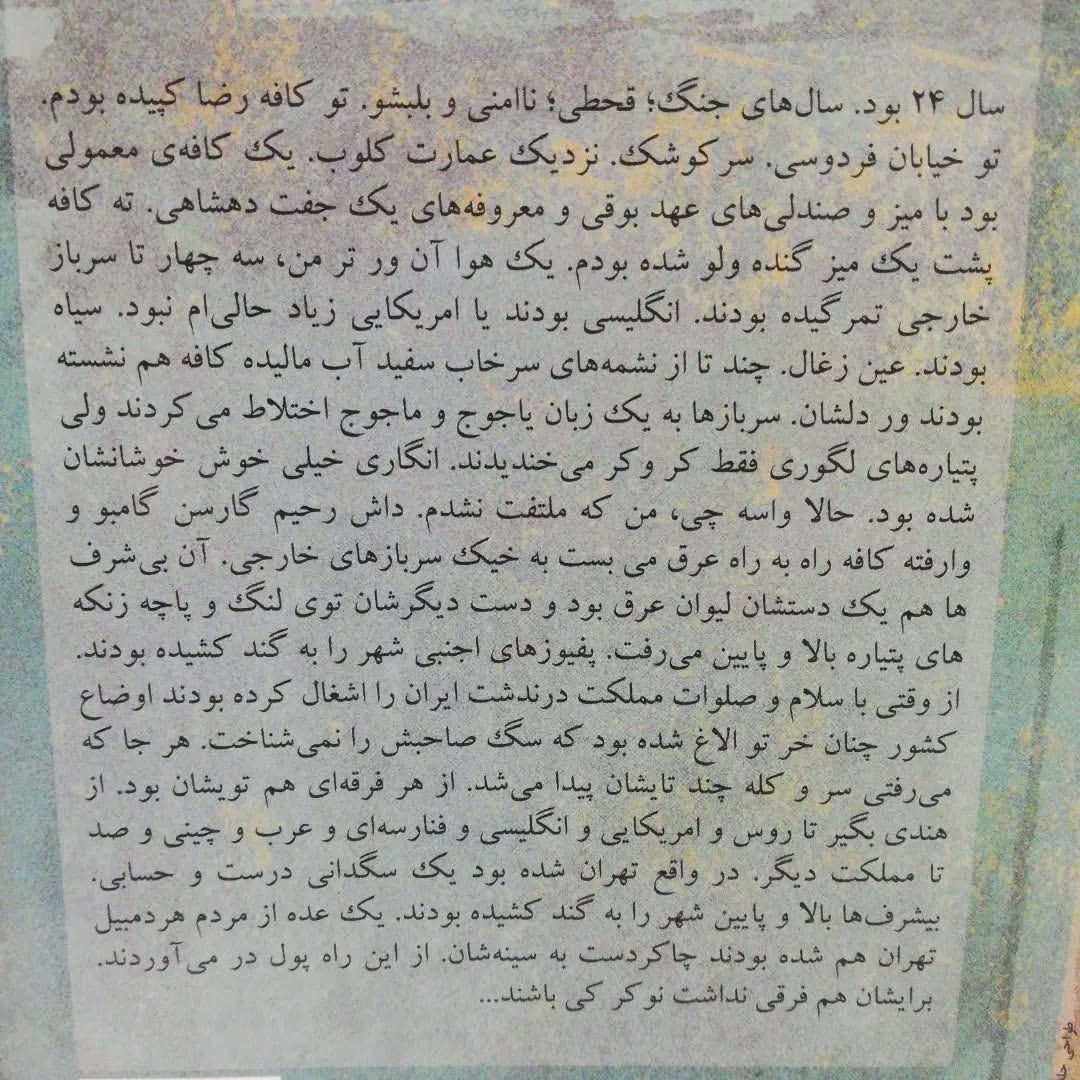 سال ۲۴ بود. سال‌های جنگ؛ قحطی؛ ناامنی و بلبشو. تو کافه رضا کپیده بودم.
تو خیابان فردوسی. سر کوشک. نزدیک عمارت کلوب. یک کافه‌ی معمولی
بود با میز و صندلی‌های عهد بوقی و معروفه‌های یک جفت دهشاهی. ته کافه
پشت یک میز گنده ولو شده بودم. یک هوا آن ور تر من، سه چهار تا سرباز
خارجی تمرگیده بودند. انگلیسی بودند یا امریکایی زیاد حالی‌ام نبود. سیاه
بودند. عین زغال. چند تا از نشمه‌های سرخاب سفید آب مالیده کافه هم نشسته
بودند ور دلشان. سربازها به یک زبان یاجوج و ماجوج اختلاط می‌کردند ولی
پتیاره‌های لگوری فقط کر وکر می‌خندیدند. انگاری خیلی خوش خوشانشان
شده بود. حالا واسه چی، من که ملتفت نشدم. داش رحیم گارسن گامبو و
وارفته کافه راه به راه عرق می بست به خیک سربازهای خارجی. آن بی‌شرف
ها هم یک دستشان لیوان عرق بود و دست دیگرشان توی لنگ و پاچه زنکه
های پتیاره بالا و پایین می‌رفت. پفیوزهای اجنبی شهر را به گند کشیده بودند.
از وقتی با سلام و صلوات مملکت درندشت ایران را اشغال کرده بودند اوضاع
کشور چنان خر تو الاغ شده بود که سگ صاحبش را نمی‌شناخت. هر جا که
می‌رفتی سر و کله چند تایشان پیدا می‌شد. از هر فرقه‌ای هم تویشان بود. از
هندی بگیر تا روس و امریکایی و انگلیسی و فنارسه‌ای و عرب و چینی و صد
تا مملکت دیگر. در واقع تهران شده بود یک سگدانی درست و حسابی.
بیشرف‌ها بالا و پایین شهر را به گند کشیده بودند. یک عده از مردم هردمبیل
تهران هم شده بودند چاکردست به سینه‌شان. از این راه پول در می‌آوردند.
برایشان هم فرقی نداشت نوکر کی باشند...
طراحی